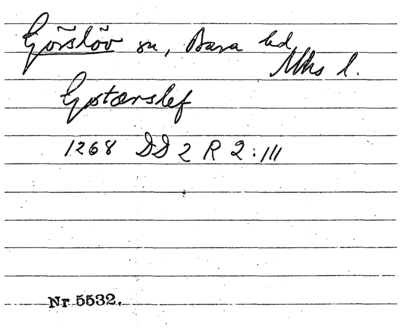 Görslöv sn, Bara hd,
Mhs l.
Gøtærslef
1268 DD 2 R 2:111
Nr 5532.